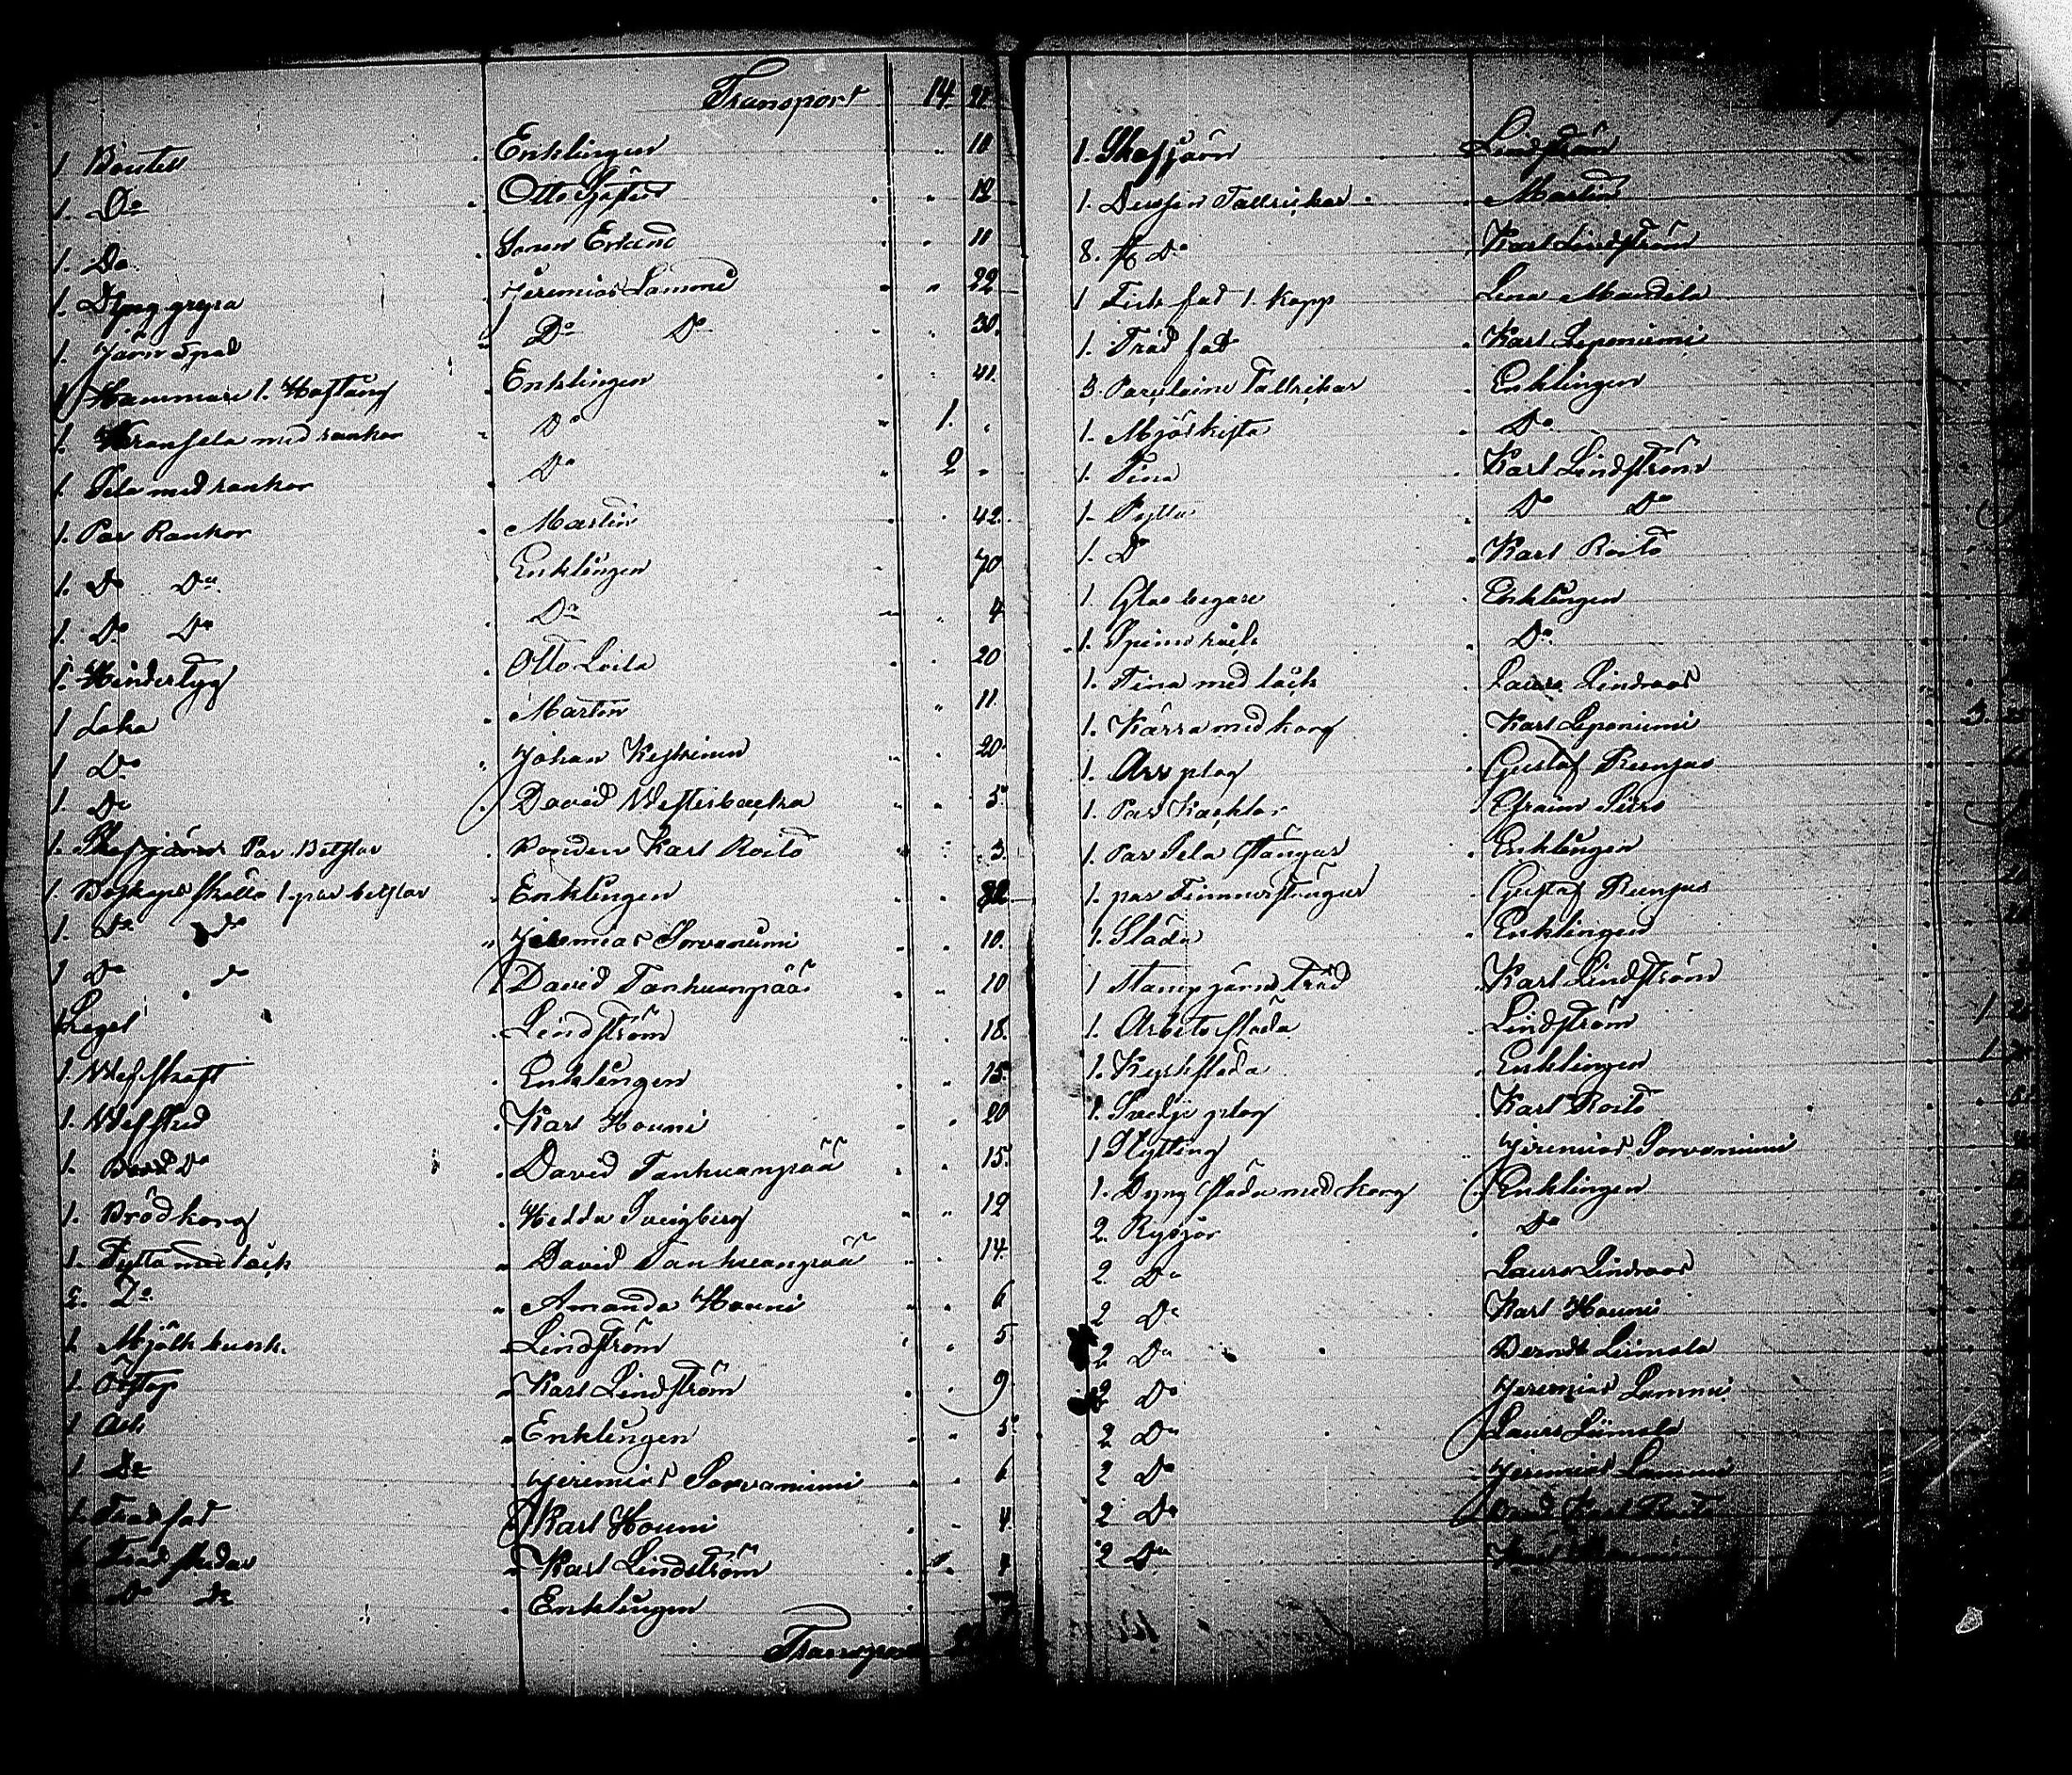 Transport 14 21
1 Boutell Enklingen 10
1. Do Otto 12
1. Do Soren Erland 11
1. Dyng grepa Jeremias Lammi 22
1. Järn Spad Do Do 30.
1 Hammare 1. Hoftång Enklingen 41.
1. Kransela med rankor Do 1.
1. Sela med rankor Do 2
1. Par Rankor Martin 42.
1. Do Do Enklingen 70
1. Do Do Do 4
1. Hindertyg Otto Loila 20
1 Laka Martin 11.
1 Do Johan Keskinen 20
1. Do David Westerbacka 5
1. Par Betslar Bonden Karl Roito 3.
1. 1. par betslar Enklingen
1. Do do Jeremias Sorvaniemi 10.
1 Do do David Tanhuanpää 10
Legel Lindström 18.
1. Wefskaft Enklingen 15
1. Wefsked Karl Houni 20
1. Do David Tanhuanpää 15
1. Brödkorg Hedda Sveigberg 12
1. Bytta med läck David Tanhuanpää 14.
2. Do Amanda Houni 6
1. Mjölk bunk. Lindström 5
1. Östop Karl Lindström 9
1 Ask Enklingen 5
1 Do Jeremias Sorvaniemi 6
1. Träd fat Karl Houni 4
Träd skedar Karl Lindström 4
Do do Enklingen
Transport
1. Skafjärn Lindström
1. Dussin Tallrickar Martin
8. st Do Karl Lindström
1 Fisk fad 1. Kopp Lena Mandela
1. Träd fat Karl Leponiemi
3. Porslains Tallrikar Enklingen
1. Mjöl kista Do
1. Tina Karl Lindström
1. Bytta Do Do
1. Do Karl Roito
1. Glas begare Enklingen
1. Spinn råck Do
1. Tina med läck Laurs Lindroos
1. Kärra med korg Karl Leponiemi 3.
1. Arr plog Gustaf Runjas
1. Par Kacklor Efraim Sirro
1. Par Sela stångar Enklingen
1. par Timmerstångar Gustaf Runjas
1. Släda Enklingen
1 Stamp järn Träd Karl Lindström
1. Arbets släda Lindström 1
1. Kyrksläda Enklingen 1
1. Svedje plog Karl Roito
1 Skytting Jeremias Sorvaniemi
1. Dyng släda med korg Enklingen
2. Rysjor Do
2 Do Laurs Lindroos
2 Do Karl Houni
2 Do Berndt Liimola
2 Do Jeremias Lammi
2 Do Laurs Liimola
2 Do Jeremias Lammi
2 Do Karl Roito
2 Do